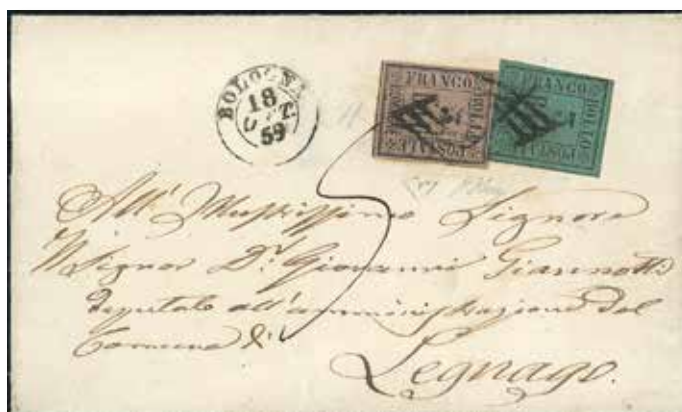 BOLOGNA
18
OTT.
59
FRANCO
BOLLO
POSTALE
FRANCO
BOLLO
POSTALE
All' Illustrissimo Signore
Il Signor Dr. Giovanni Giannotti
deputato all'amministrazione del
Comune di
Legnago.